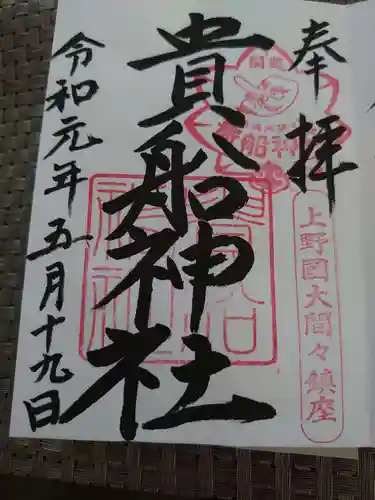 奉拝
上野國大間々鎮座
貴船神社
令和元年五月十九日